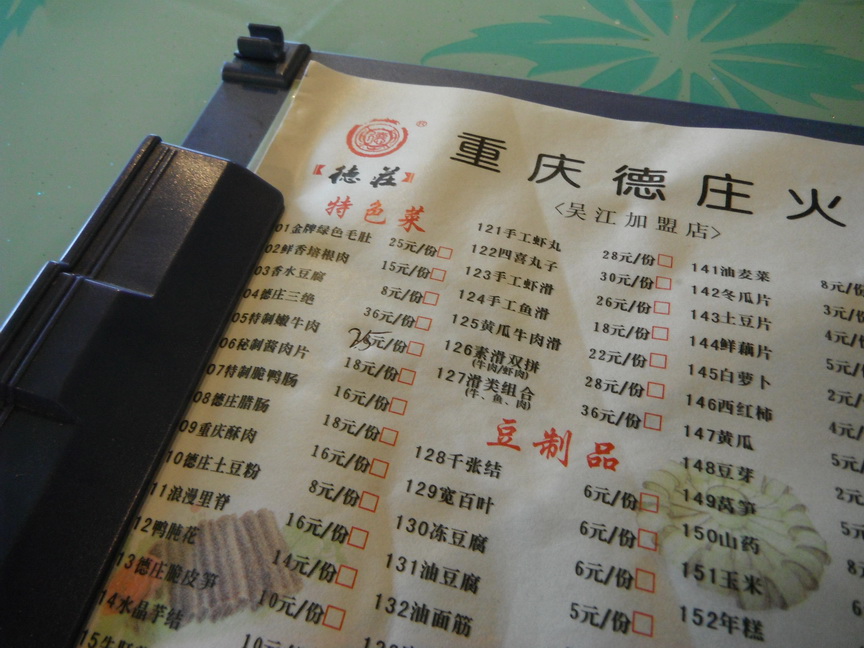 德莊
®
重庆德庄火
<吴江加盟店>
特色菜
01金牌绿色毛肚 25元/份
02鲜香培根肉 15元/份
03香水豆腐 8元/份
04德庄三绝 36元/份
05特制嫩牛肉 25元/份
06秘制酱肉片 18元/份
07特制脆鸭肠 16元/份
08德庄腊肠 18元/份
09重庆酥肉 16元/份
10德庄土豆粉 8元/份
11浪漫里脊 16元/份
12鸭肫花 14元/份
13德庄脆皮笋 10元/份
14水晶芋结 10元/份
121手工虾丸 28元/份
122四喜丸子 30元/份
123手工虾滑 26元/份
124手工鱼滑 18元/份
125黄瓜牛肉滑 22元/份
126素滑双拼 28元/份
(牛肉/虾肉)
127滑类组合 36元/份
(牛、鱼、肉)
豆制品
128千张结 6元/份
129宽百叶 6元/份
130冻豆腐 6元/份
131油豆腐 5元/份
132油面筋
141油麦菜 8元/份
142冬瓜片 3元/份
143土豆片 4元/
144鲜藕片 5元/
145白萝卜 2元/
146西红柿 4元/
147黄瓜 5元/
148豆芽 2元
149莴笋 5元
150山药 8元
151玉米 6元
152年糕